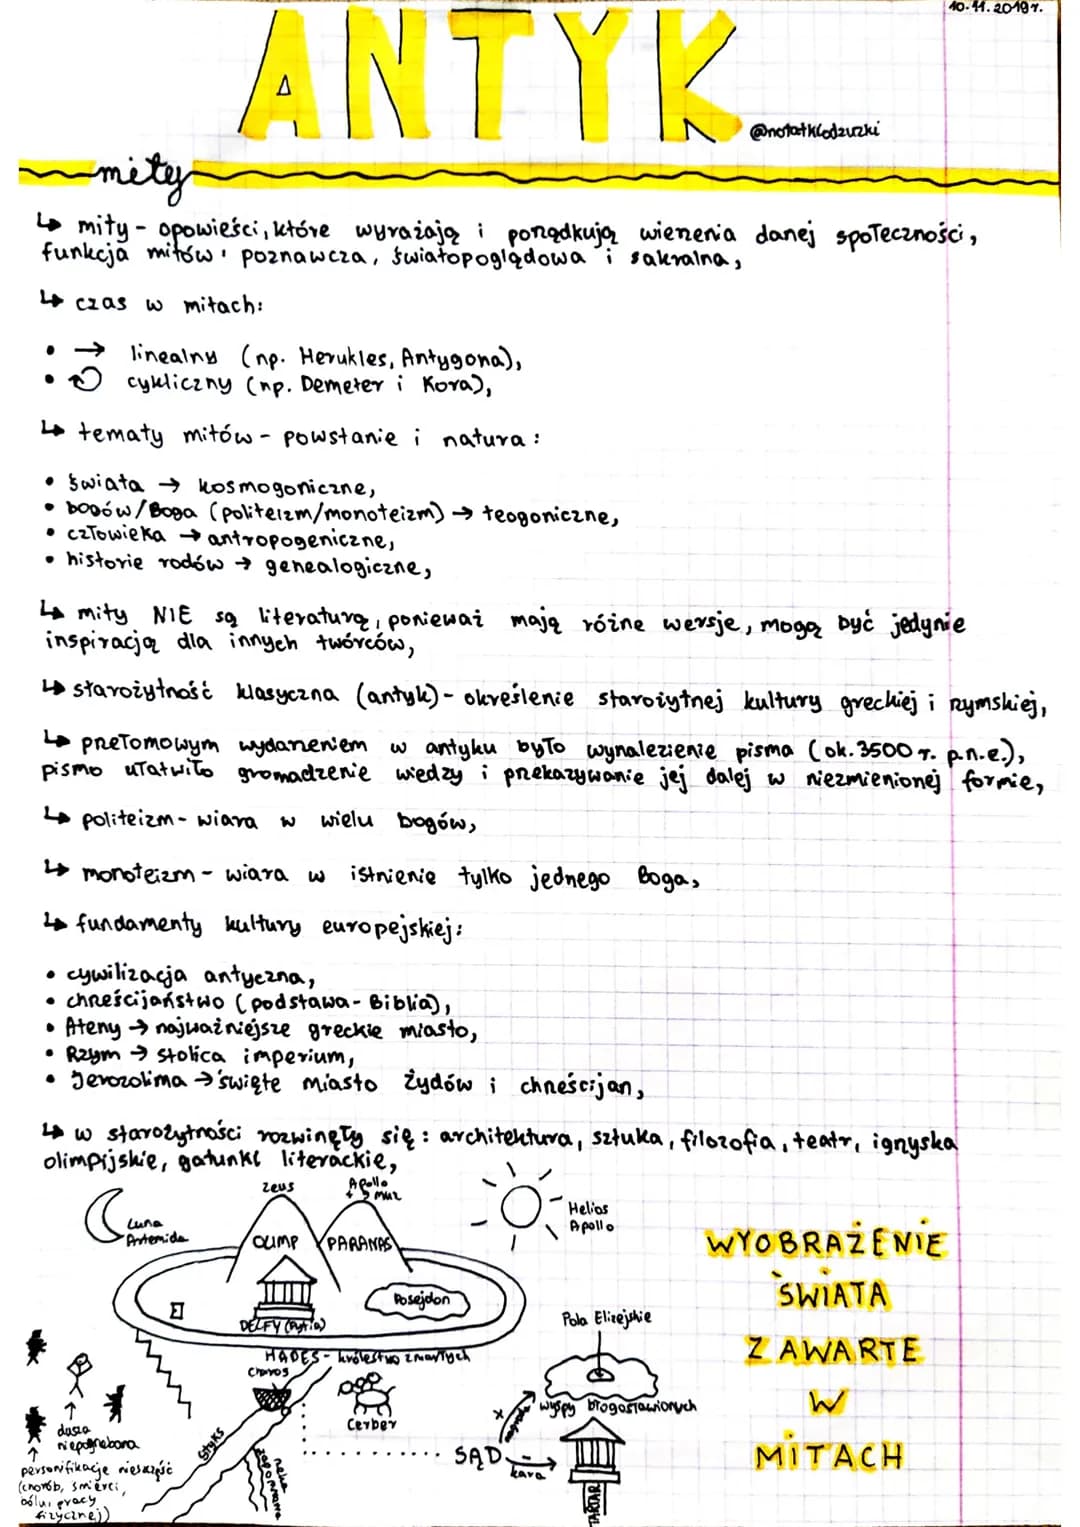 10.11.2019r.
ANTYK
@notatkiodzuzki
mity
↳ mity - opowieści, które wyrażają i porządkują wierzenia danej społeczności,
funkcja mitów: poznawcza, światopoglądowa i sakralna,
↳ czas w mitach:
• → linealny (np. Herukles, Antygona),
• cykliczny (np. Demeter i Kora),
↳ tematy mitów - powstanie i natura:
• świata → kosmogoniczne,
• bogów/Boga (politeizm/monoteizm) → teogoniczne,
• człowieka → antropogeniczne,
• historie rodów → genealogiczne,
↳ mity NIE są literaturą, ponieważ mają różne wersje, mogą być jedynie
inspiracją dla innych twórców,
↳ starożytność klasyczna (antyk) - określenie starożytnej kultury greckiej i rzymskiej,
↳ przełomowym wydarzeniem w antyku było wynalezienie pisma (ok. 3500 r. p.n.e.),
pismo ułatwiło gromadzenie wiedzy i przekazywanie jej dalej w niezmienionej formie,
↳ politeizm - wiara w wielu bogów,
↳ monoteizm - wiara w istnienie tylko jednego Boga,
↳ fundamenty kultury europejskiej:
• cywilizacja antyczna,
• chrześcijaństwo (podstawa - Biblia),
• Ateny → najważniejsze greckie miasto,
• Rzym → stolica imperium,
• Jerozolima → święte miasto żydów i chrześcijan,
↳ w starożytności rozwinęły się: architektura, sztuka, filozofia, teatr, igrzyska
olimpijskie, gatunki literackie,
Zeus
Apollo
+ 9 muz
Luna
Artemida
OLIMP
PARANAS
Helios
Apollo
Posejdon
DELFY (Pytia)
HADES - królestwo zmarłych
Charos
Cerber
Styks
rzeka
zapomnienia
dusza
niepogrzebana
personifikacje nieszczęść
(chorób, śmierci,
bólu, pracy
fizycznej)
SĄD
nagroda
kara
Pola Elizejskie
wyspy błogosławionych
TARTAR
WYOBRAŻENIE
ŚWIATA
ZAWARTE
W
MITACH